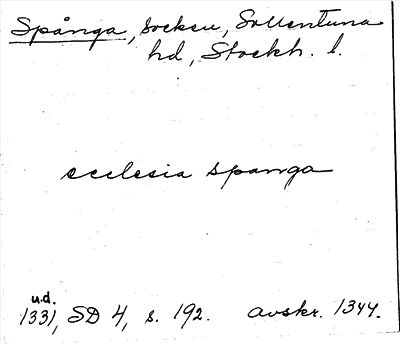 Spånga, socken, Sollentuna
hd, Stockh. l.
ecclesia spanga
u.d.
1331, SD 4, s. 192. avskr. 1344.